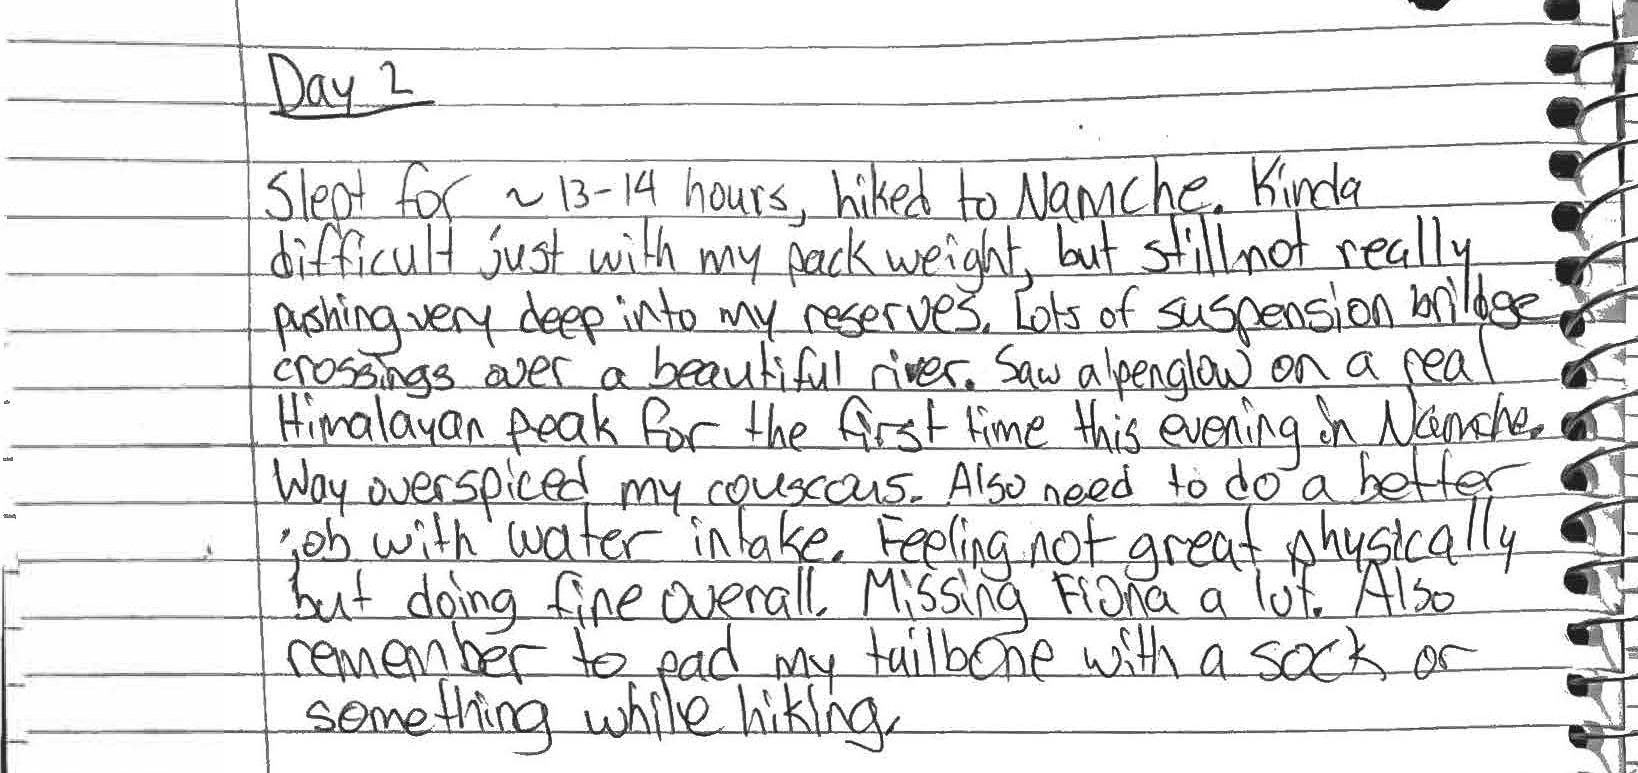 Day 2
Slept for ~13-14 hours, hiked to Namche. Kinda
difficult just with my pack weight, but still not really
pushing very deep into my reserves. Lots of suspension bridge
crossings over a beautiful river. Saw alpenglow on a real
Himalayan peak for the first time this evening in Namche.
Way overspiced my couscous. Also need to do a better
job with water intake. Feeling not great physically
but doing fine overall. Missing Fiona a lot. Also
remember to pad my tailbone with a sock or
something while hiking.